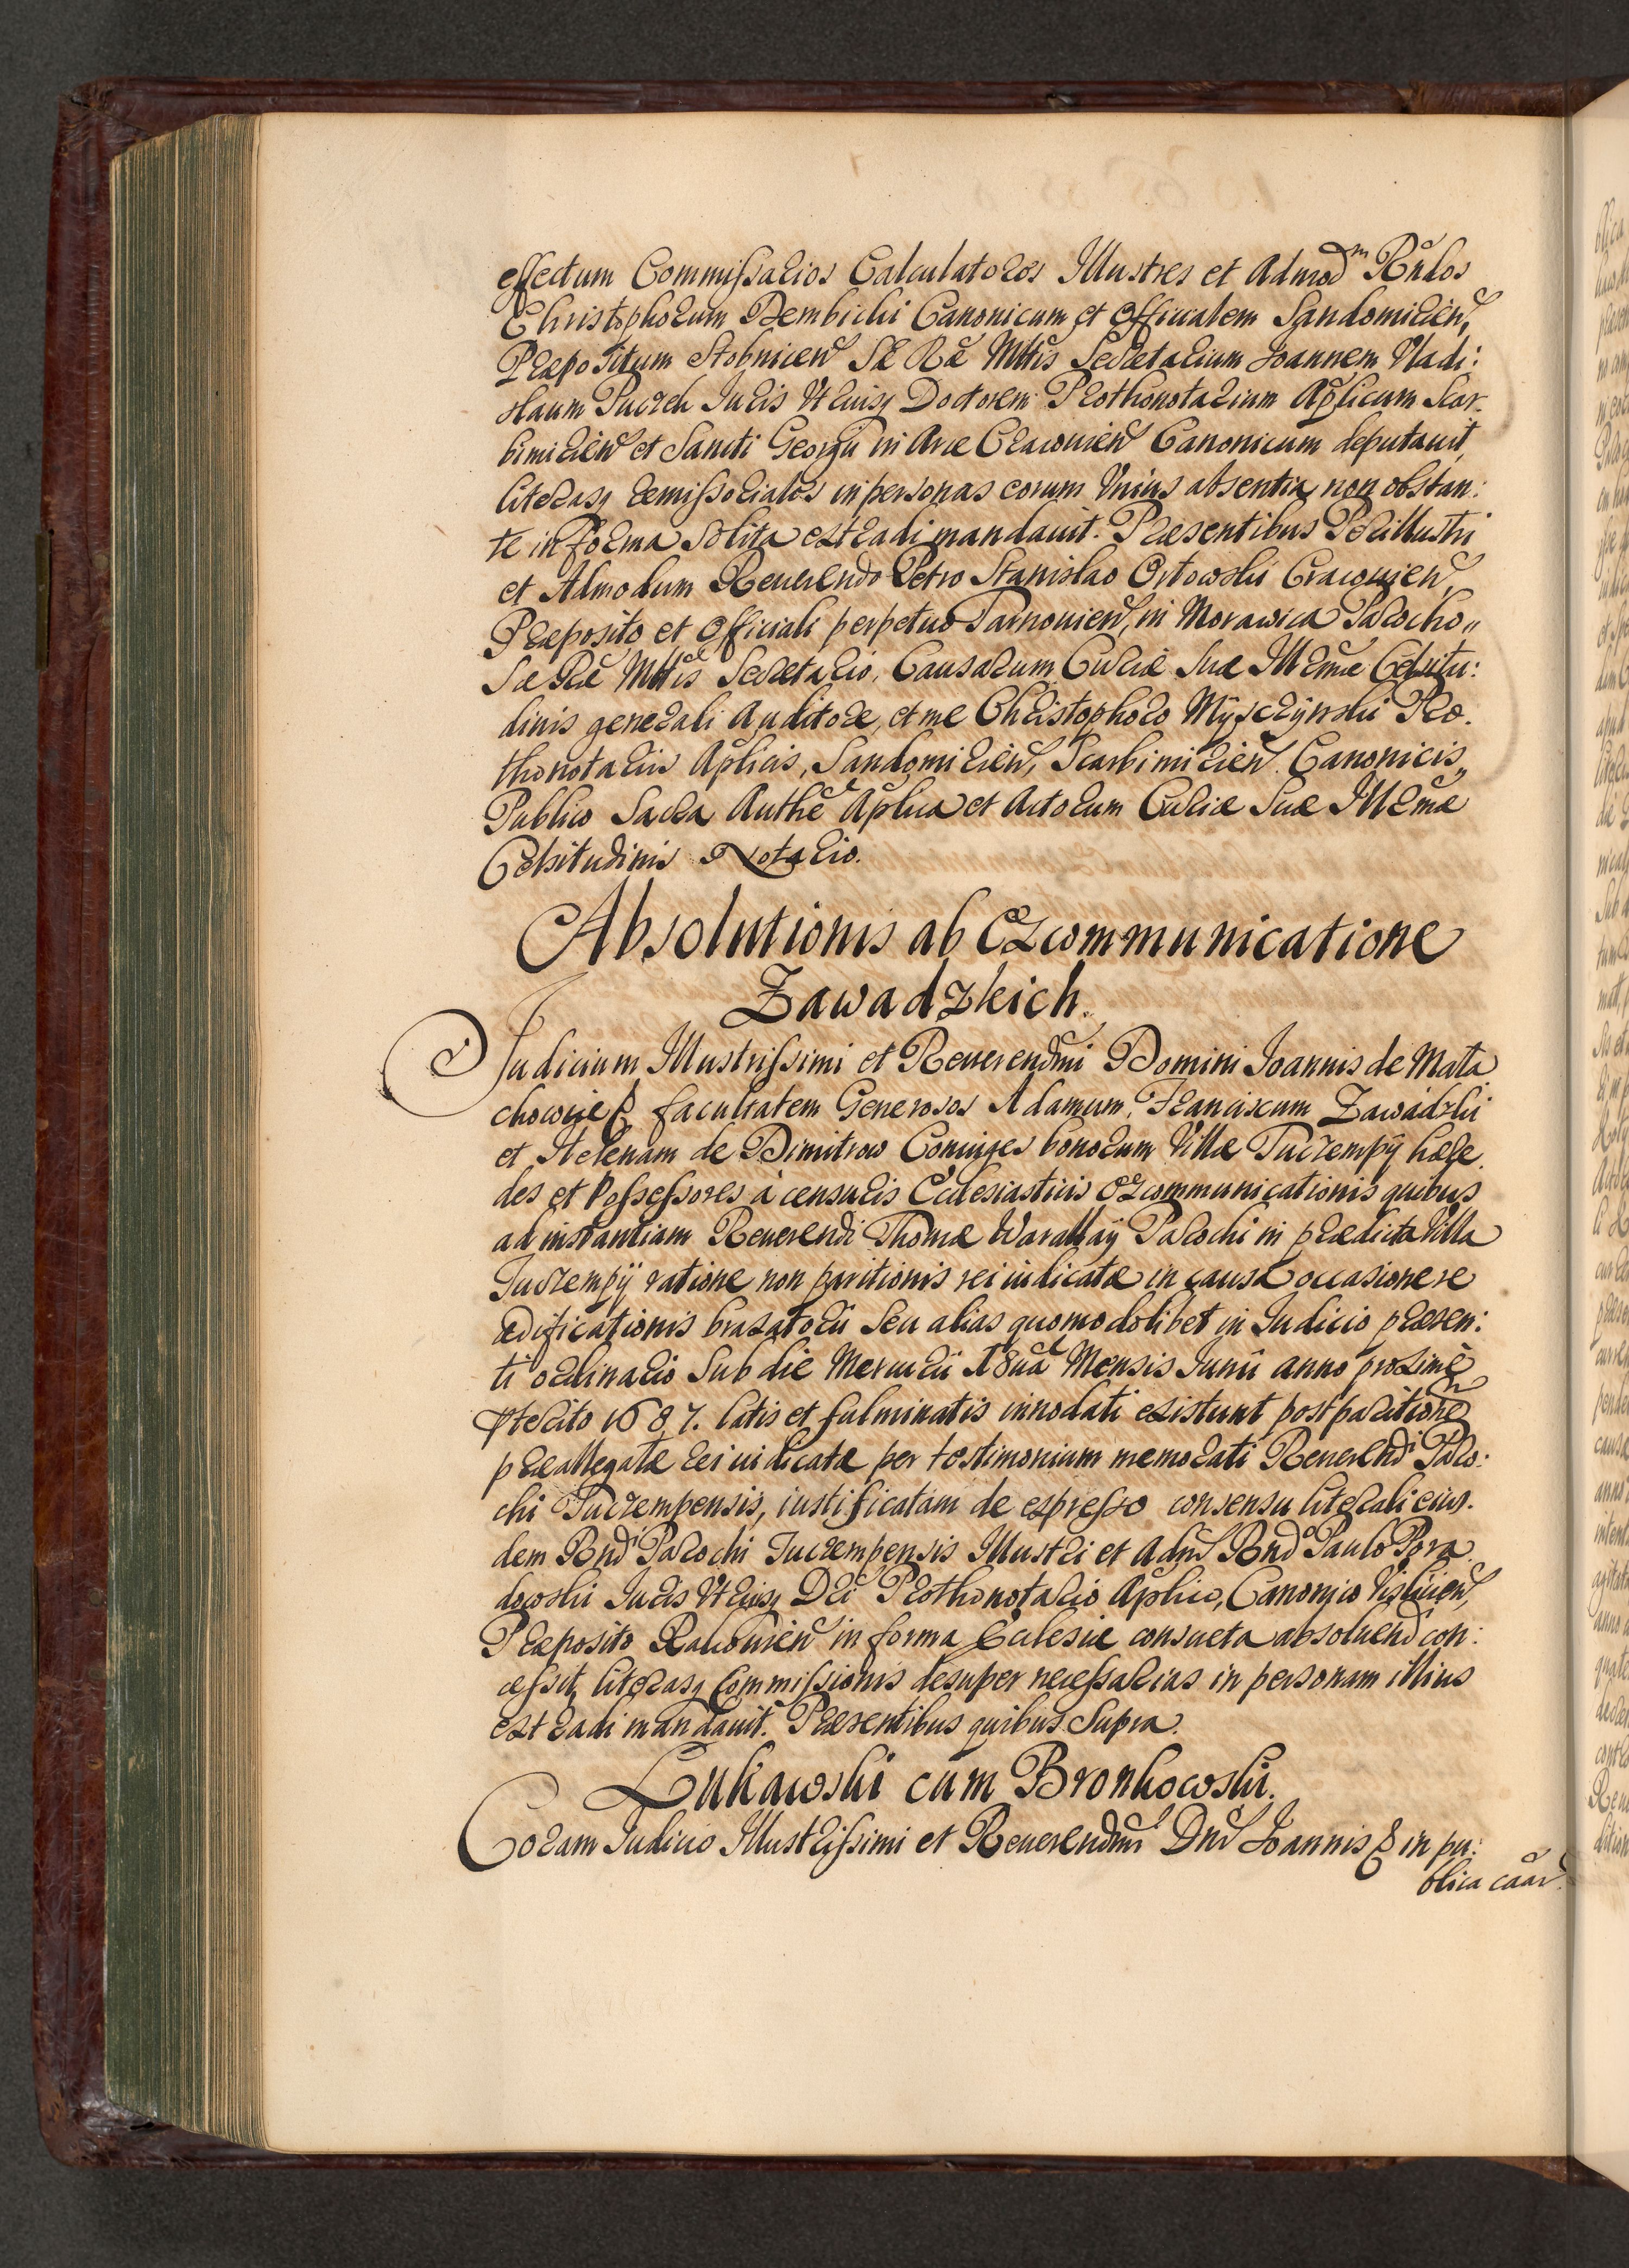 effectum Commissarios Calculatores Illustres et Admod^m Rndos
Christophorum Dembicki Canonicum et Officialem Sandomirien,
Præpositum Stobnicen Sæ Ræ Mttis Secretarium Joannem Vladi:
slaum Pucrek Juris Utriusq Doctorem Prothonotarium Aplicum Scar-
bimirien et Sancti Georgii in Arce Cracovien Canonicum deputavit,
literasq remissoriales in personas eorum Unius absentia non obstan:
te in forma solita extradi mandavit. Præsentibus Perillustri
et Admodum Reverendo Petro Stanislao Orłowski Cracovien,
Præposito et Officiali perpetuo Tarnovien, in Morawica Parocho,,
Sæ Ræ Mttis Secretario, Causarum Curiæ Suæ Illmæ Celsitu:
dinis generali Auditore, et me Christophoro Myszczynski Pro-
thonotariis Aplicis, Sandomirien, Scarbimirien Canonicis,
Publico Sacra Authe Aplica et Actorum Curiæ Suæ Illmæ
Celsitudinis Notario.
Absolutionis ab Excommunicatione
Zawadzkich.
Judicium Illustrissimi et Reverendmi Domini Joannis de Mała
chowice & facultatem Generosos Adamum, Franciscum Zawadzki
et Helenam de Dimitrow Coniuges bonorum Villæ Tuczempy hære
des et Possessores à censuris Ecclesiasticis excommunicationis quibus
ad instantiam Reverendi Thomæ Parochi in prædicta Villa
Tuczempy ratione non paritionis rei iudicatæ in causa occasione re
ædificationis braxatorii seu alias quomodolibet in Judicio præsen:
ti ordinario sub die Mercurii 18va Mensis Junii anno proximè
pterito 1687. latis et fulminatis innodati existunt post paritione
præallegatæ rei iudicatæ per testimonium memorati Reverendi Paro:
chi Tuczempensis, iustificatam de expresso consensu literali eius-
dem Rndi Parochi Tuczempensis Illustri et Adm Rndo Paulo Pora
dowski Juris Utriusq Dri Prothonotario Aplico, Canonico Vislicien,
Præposito Rakovien in forma Ecclesiæ consueta absolvend con:
cessit, literasq Commissionis desuper necessarias in personam illius
extradi mandavit. Præsentibus quibus Supra.
Łukawski cum Bronkowski.
Coram Judicio Illustrissimi et Reverendmi Dni Joannis & in pu:
blica caar